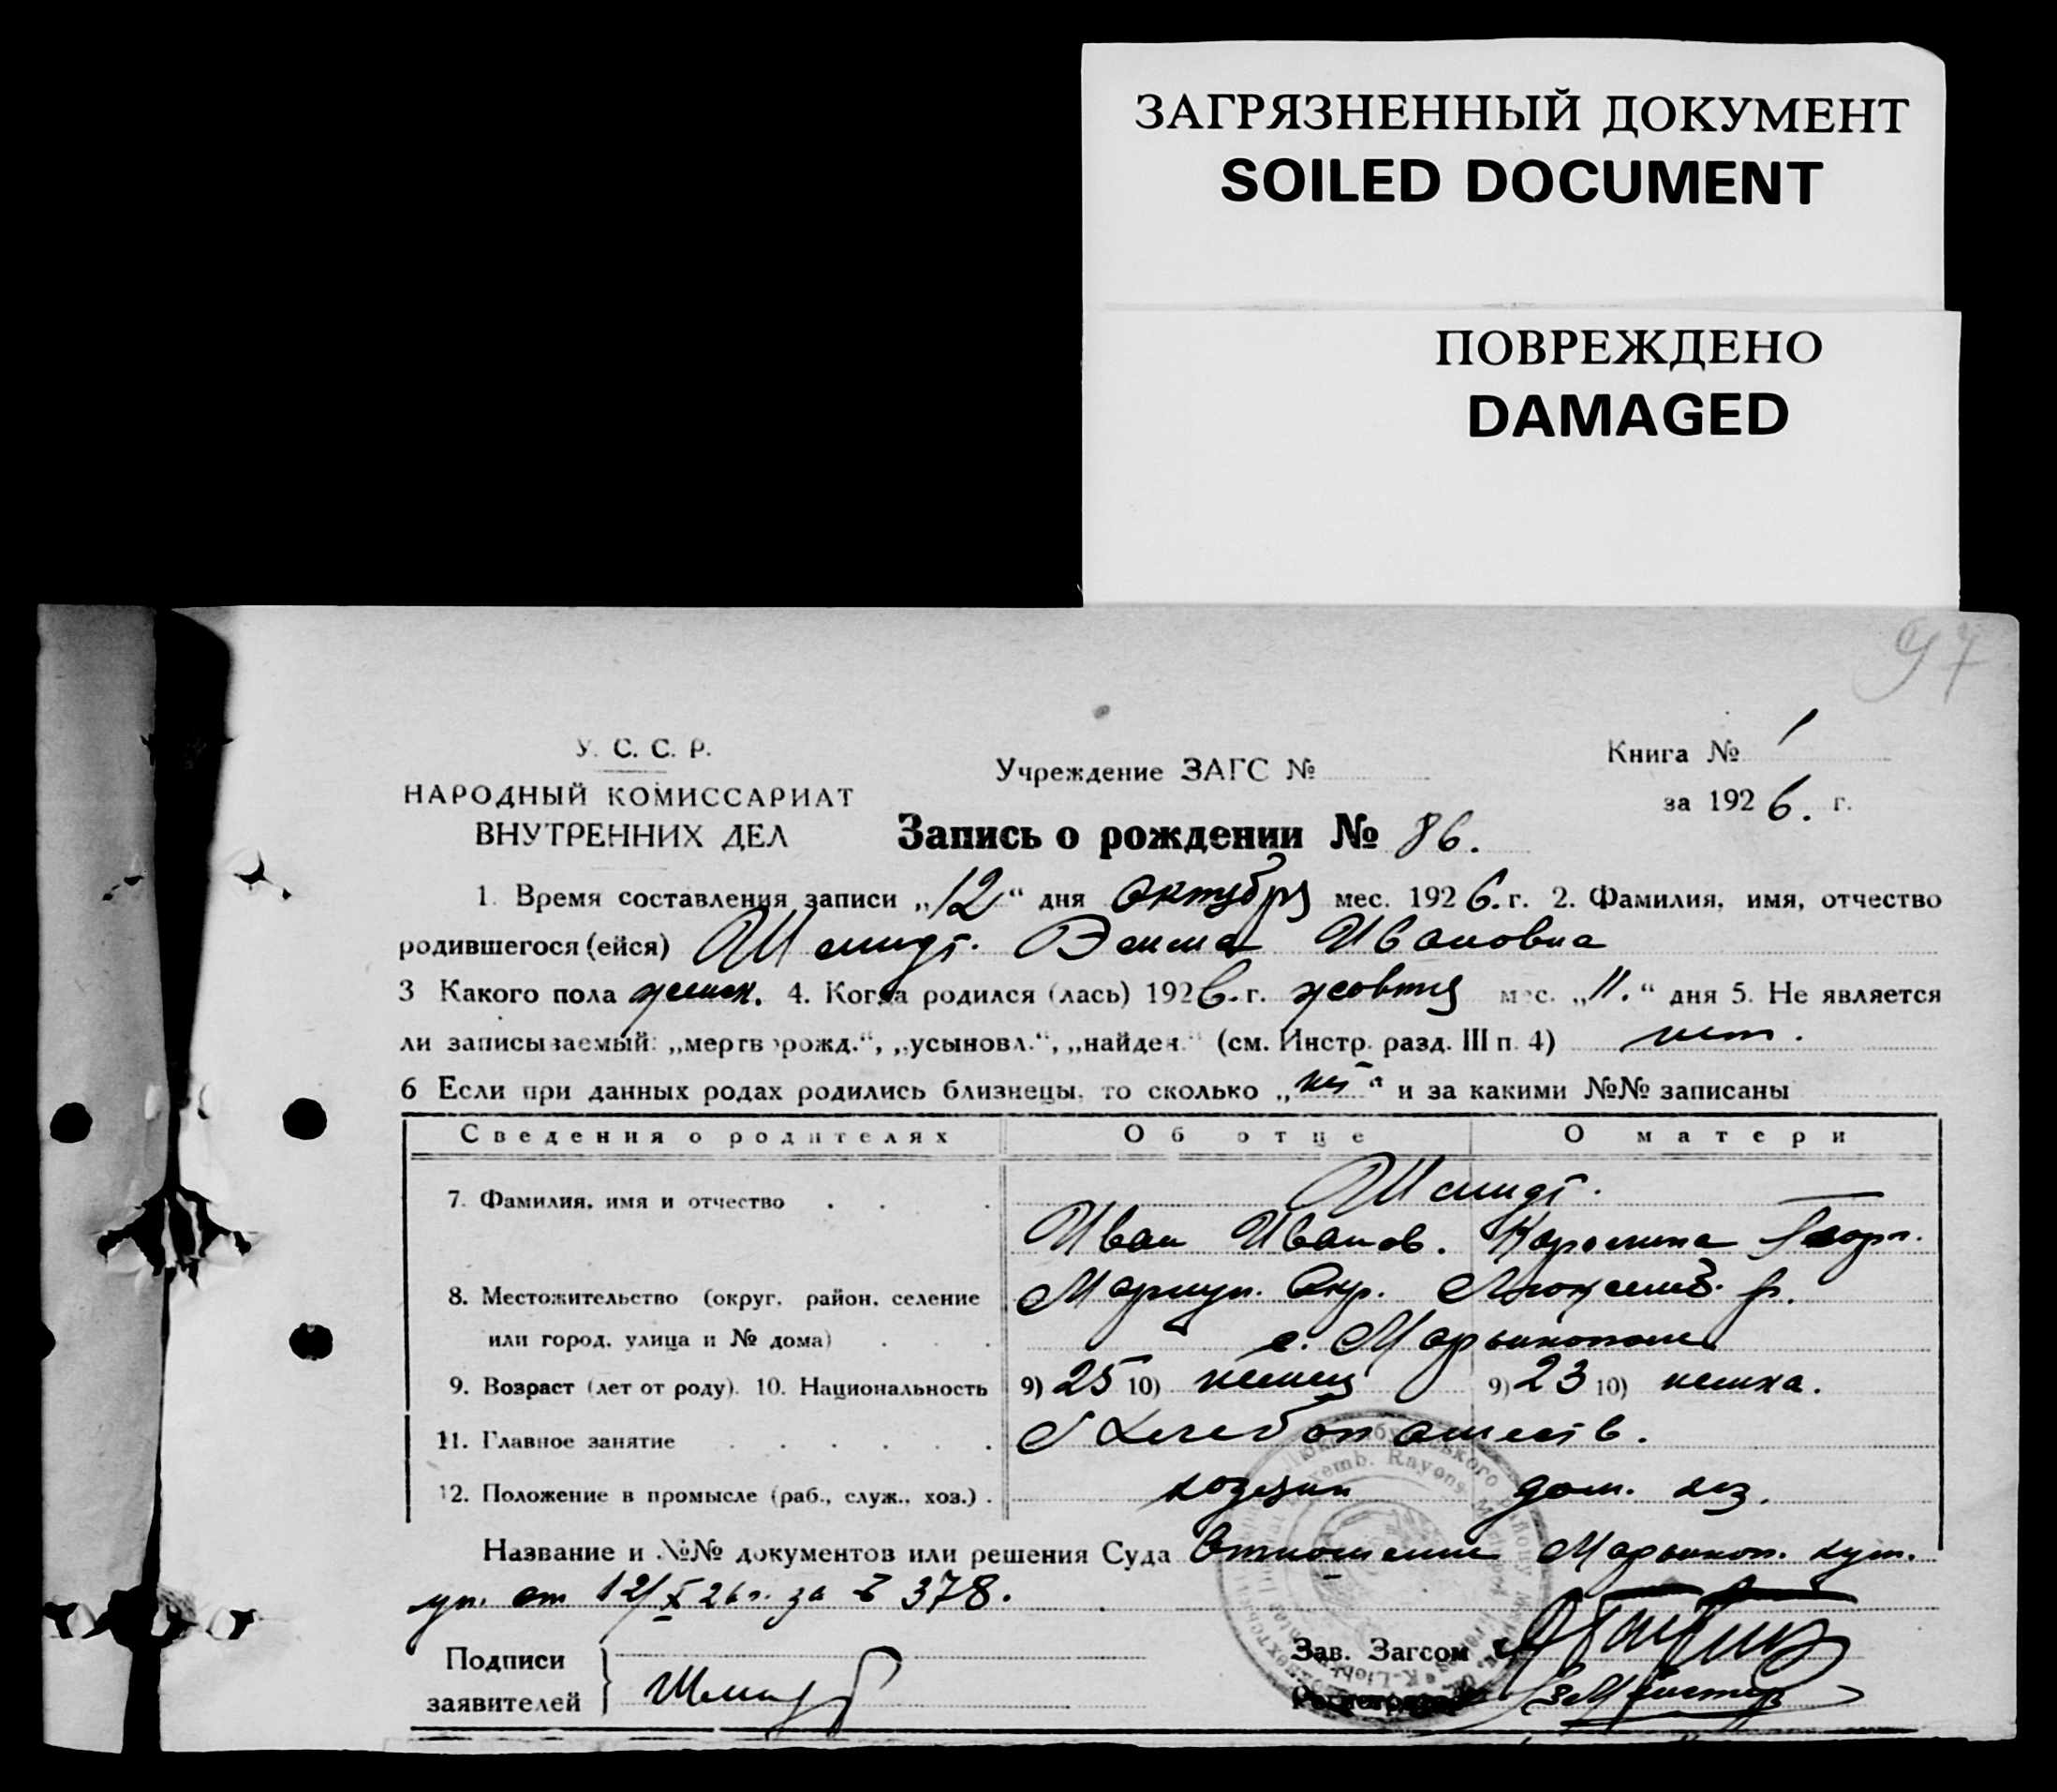 ЗАГРЯЗНЕННЫЙ ДОКУМЕНТ
SOILED DOCUMENT
ПОВРЕЖДЕНО
DAMAGED
97
У. С. С. Р.
НАРОДНЫЙ КОМИССАРИАТ
ВНУТРЕННИХ ДЕЛ
Учреждение ЗАГС №
Книга № 1
за 1926. г.
Запись о рождении № 86.
1. Время составления записи „12“ дня октября мес. 1926. г. 2. Фамилия, имя, отчество
родившегося (ейся) Шмидт. Эмма Ивановна
3 Какого пола женск. 4. Когда родился (лась) 1926. г. жовтня мес. „11.“ дня 5. Не является
ли записываемый: „мертворожд.“, „усыновл.“, „найден.“ (см. Инстр. разд. III п. 4) нет.
6 Если при данных родах родились близнецы, то сколько „нет“ и за какими №№ записаны
Сведения о родителях Об отце О матери
7. Фамилия, имя и отчество . . . Шмидт.
Иван Иванов. Каролина Георг.
8. Местожительство (округ, район, селение Мариуп. Окр. Люксемб. р.
или город, улица и № дома) . . . с. Марьинополь
9. Возраст (лет от роду). 10. Национальность 9) 25 10) немец 9) 23 10) немка.
11. Главное занятие . . . . . . Хлебопашеств.
12. Положение в промысле (раб., служ., хоз.) . хозяин дом. хоз.
Название и №№ документов или решения Суда Отношение Марьиноп.
уп. от 12/X 26 г. за № 378.
Подписи
заявителей Шмидт
Зав. Загсом